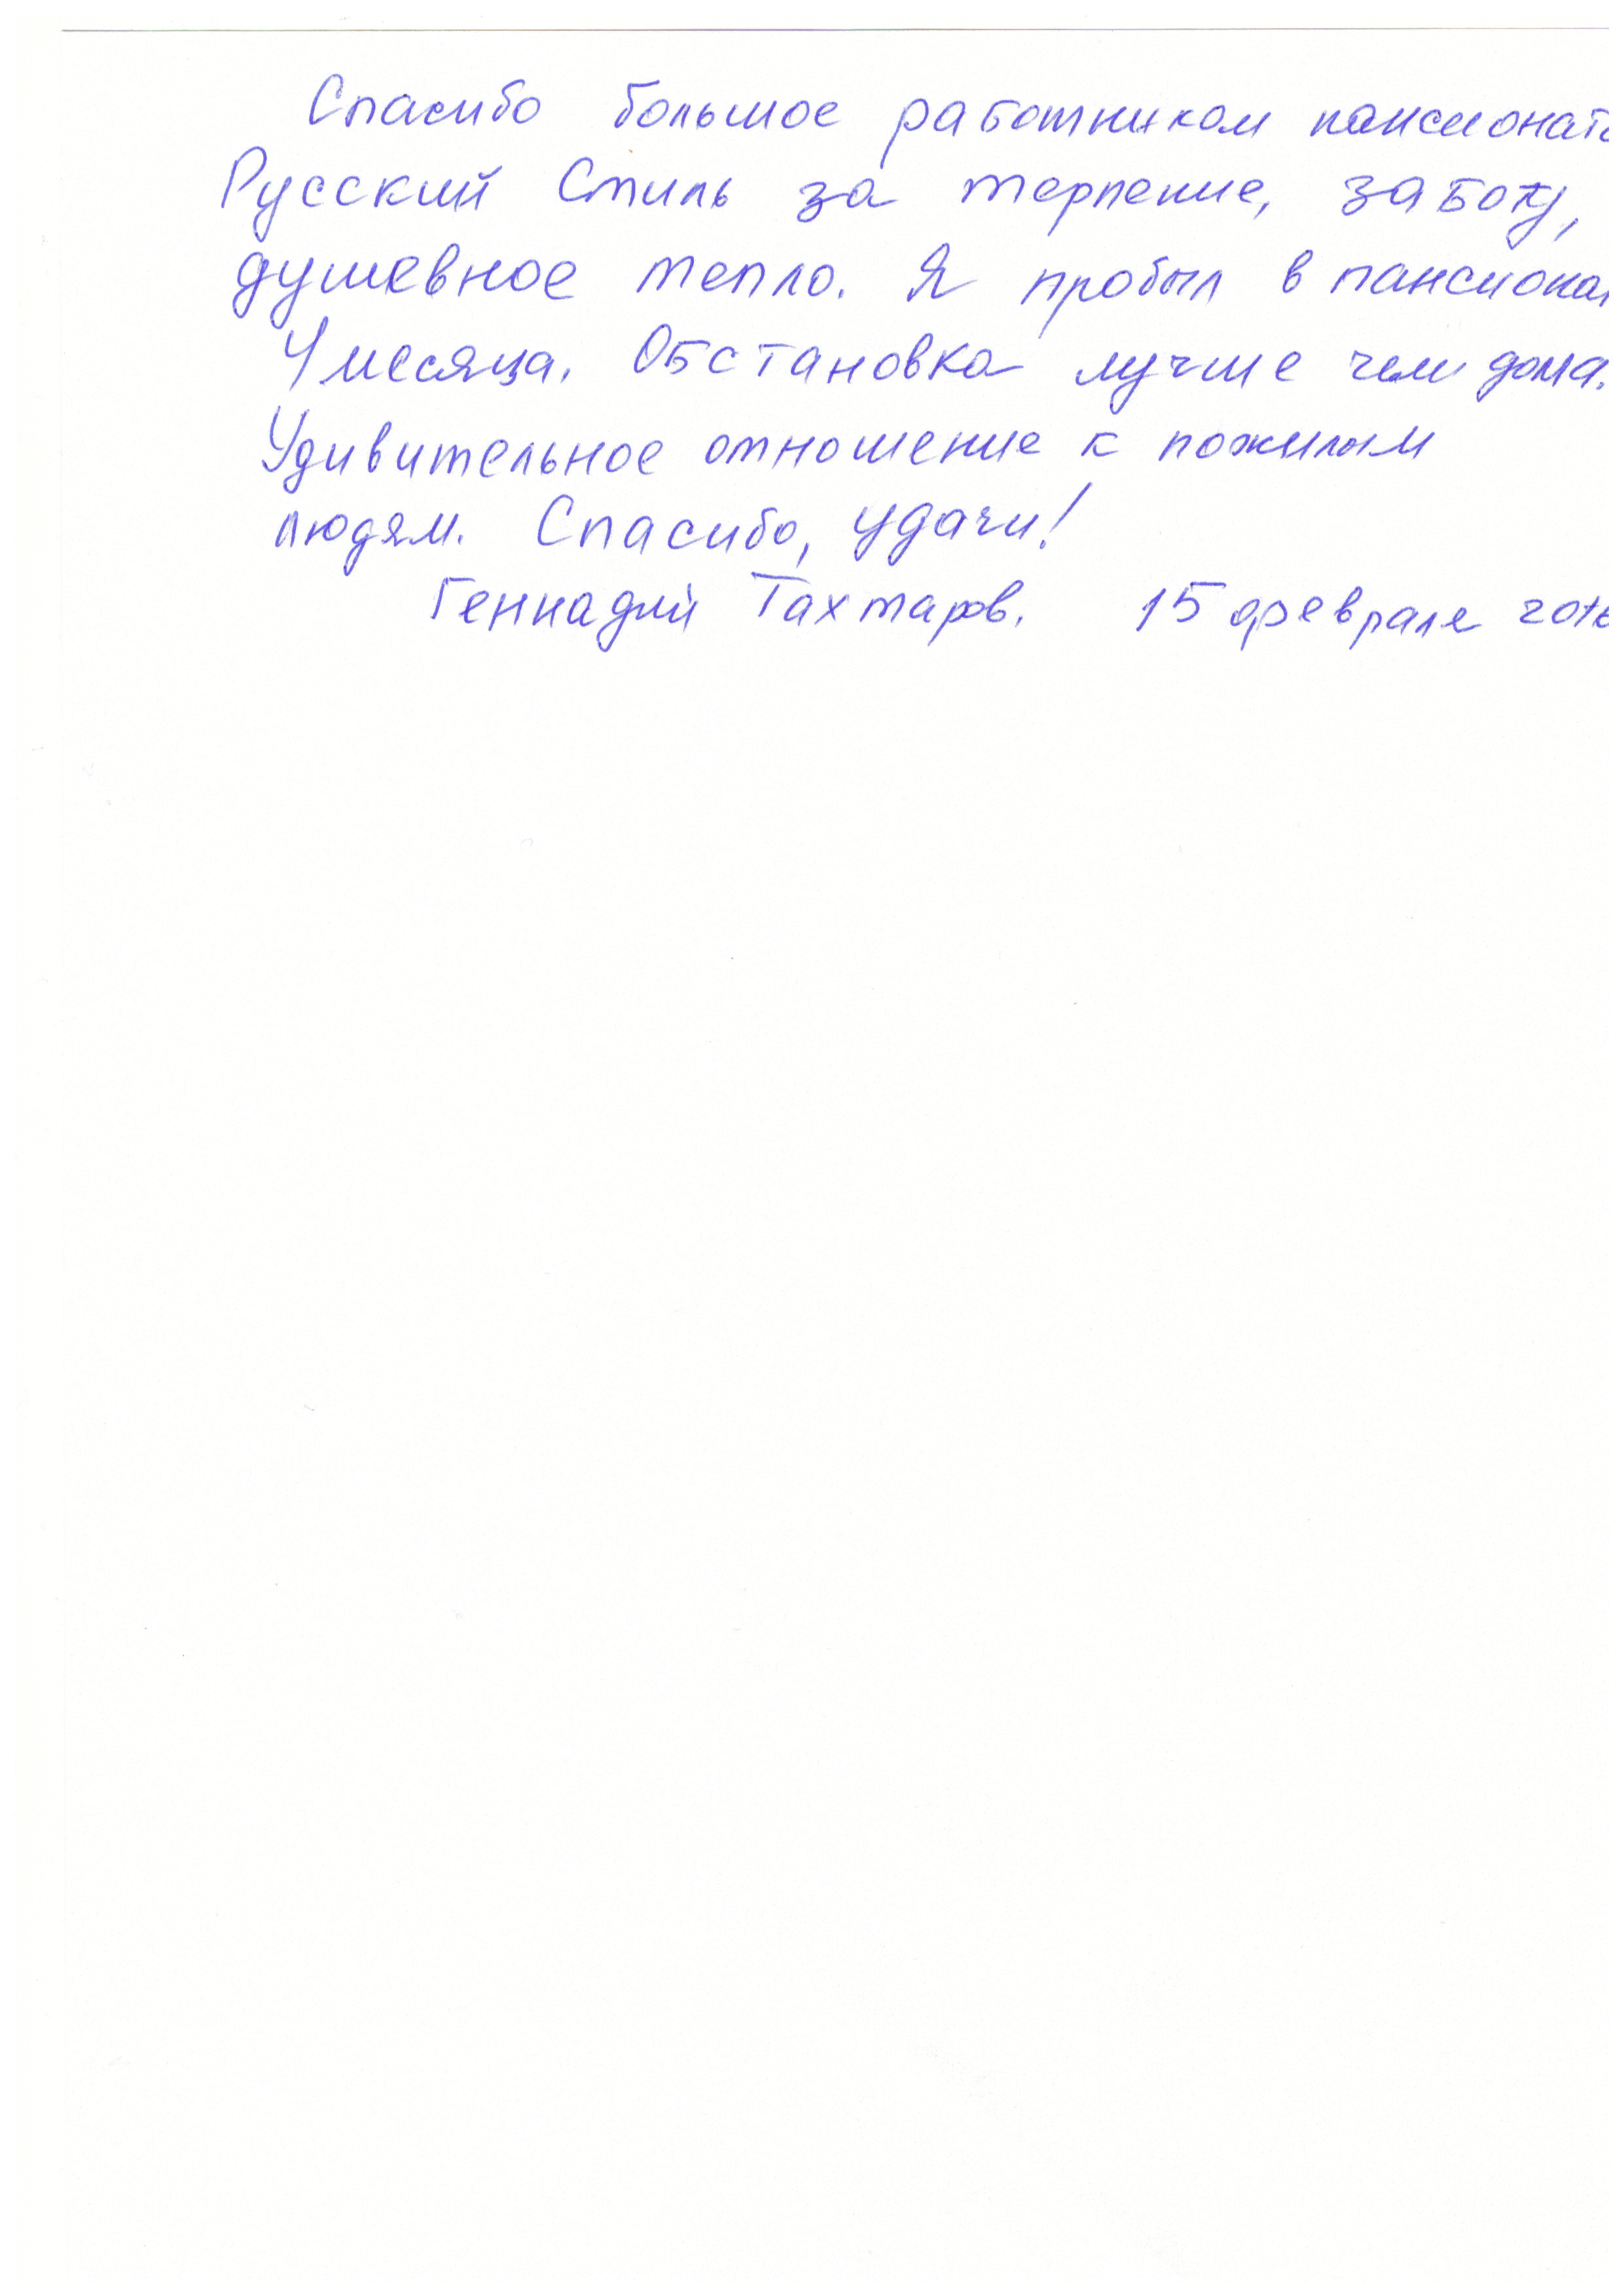 Спасибо большое работникам пансионата
Русский Стиль за терпение, заботу,
душевное тепло. Я пробыл в пансиона
4 месяца. Обстановка лучше чем дома.
Удивительное отношение к пожилым
людям. Спасибо, удачи!
Геннадий Тахтаров. 15 февраля